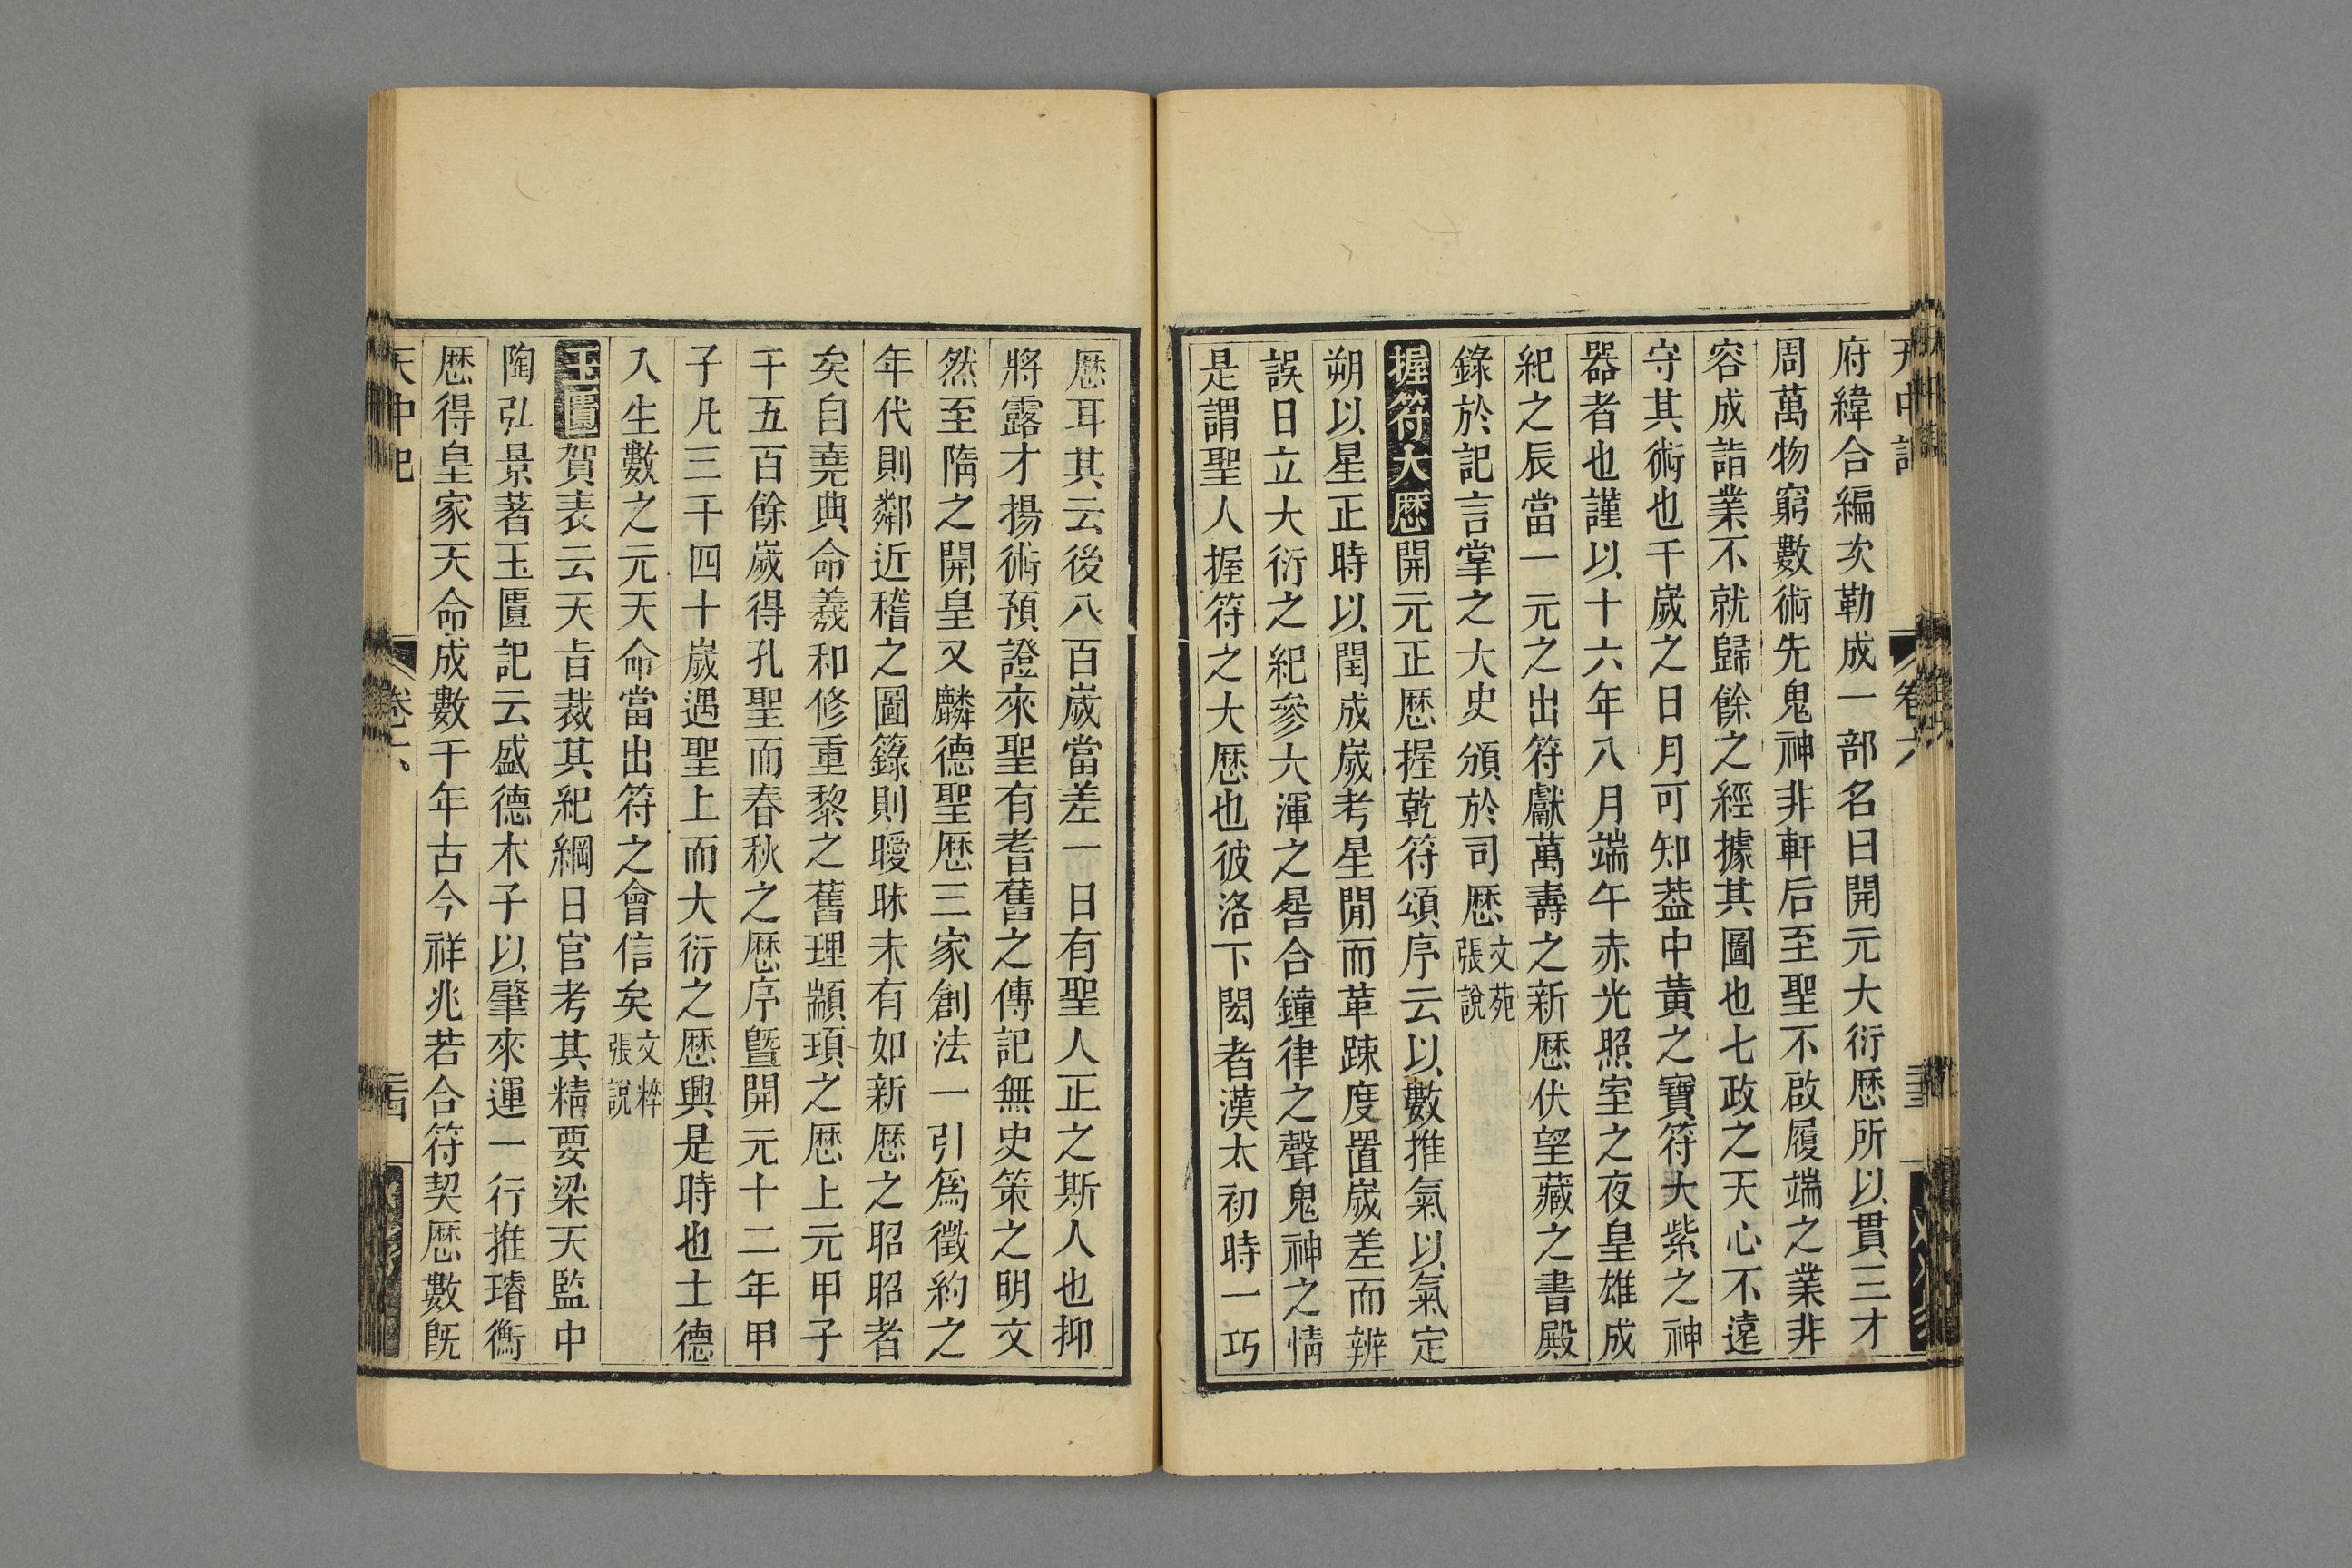 天中記
卷六
府緯合編次勒成一部名曰開元大衍厯所以貫三才
周萬物窮數術先鬼神非軒后至聖不啟履端之業非
容成詣業不就歸餘之經據其圖也七政之天心不遠
守其術也千歲之日月可知葢中黃之寶符大紫之神
器者也謹以十六年八月端午赤光照室之夜皇雄成
紀之辰當一元之出符獻萬壽之新厯伏望藏之書殿
錄於記言掌之大史頒於司厯文苑張說
握符大厯開元正厯握乾符頌序云以數推氣以氣定
朔以星正時以閏成歲考星閒而革踈度置歲差而辨
誤日立大衍之紀參大渾之晷合鐘律之聲鬼神之情
是謂聖人握符之大厯也彼洛下閎者漢太初時一巧
厯耳其云後八百歲當差一日有聖人正之斯人也抑
將露才揚術預證來聖有耆舊之傳記無史策之明文
然至隋之開皇又麟德聖厯三家創法一引爲徵約之
年代則鄰近稽之圖籙則曖昧未有如新厯之昭昭者
矣自堯典命羲和修重黎之舊理顓頊之厯上元甲子
千五百餘歲得孔聖而春秋之厯序曁開元十二年甲
子凡三千四十歲遇聖上而大衍之厯興是時也士德
入生數之元天命當出符之會信矣文粹張說
玉匱賀表云天㫖裁其紀綱日官考其精要梁天監中
陶弘景著玉匱記云盛德木子以肇來運一行推璿衡
厯得皇家天命成數千年古今祥兆若合符契厯數旣
天中記
卷六